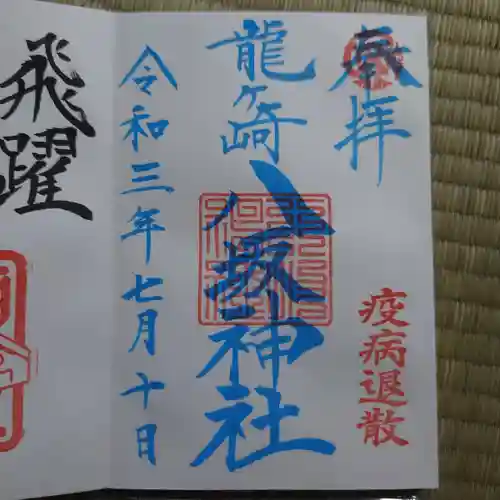 奉拝
疫病退散
龍ヶ崎
八坂神社
令和三年七月十日
飛躍